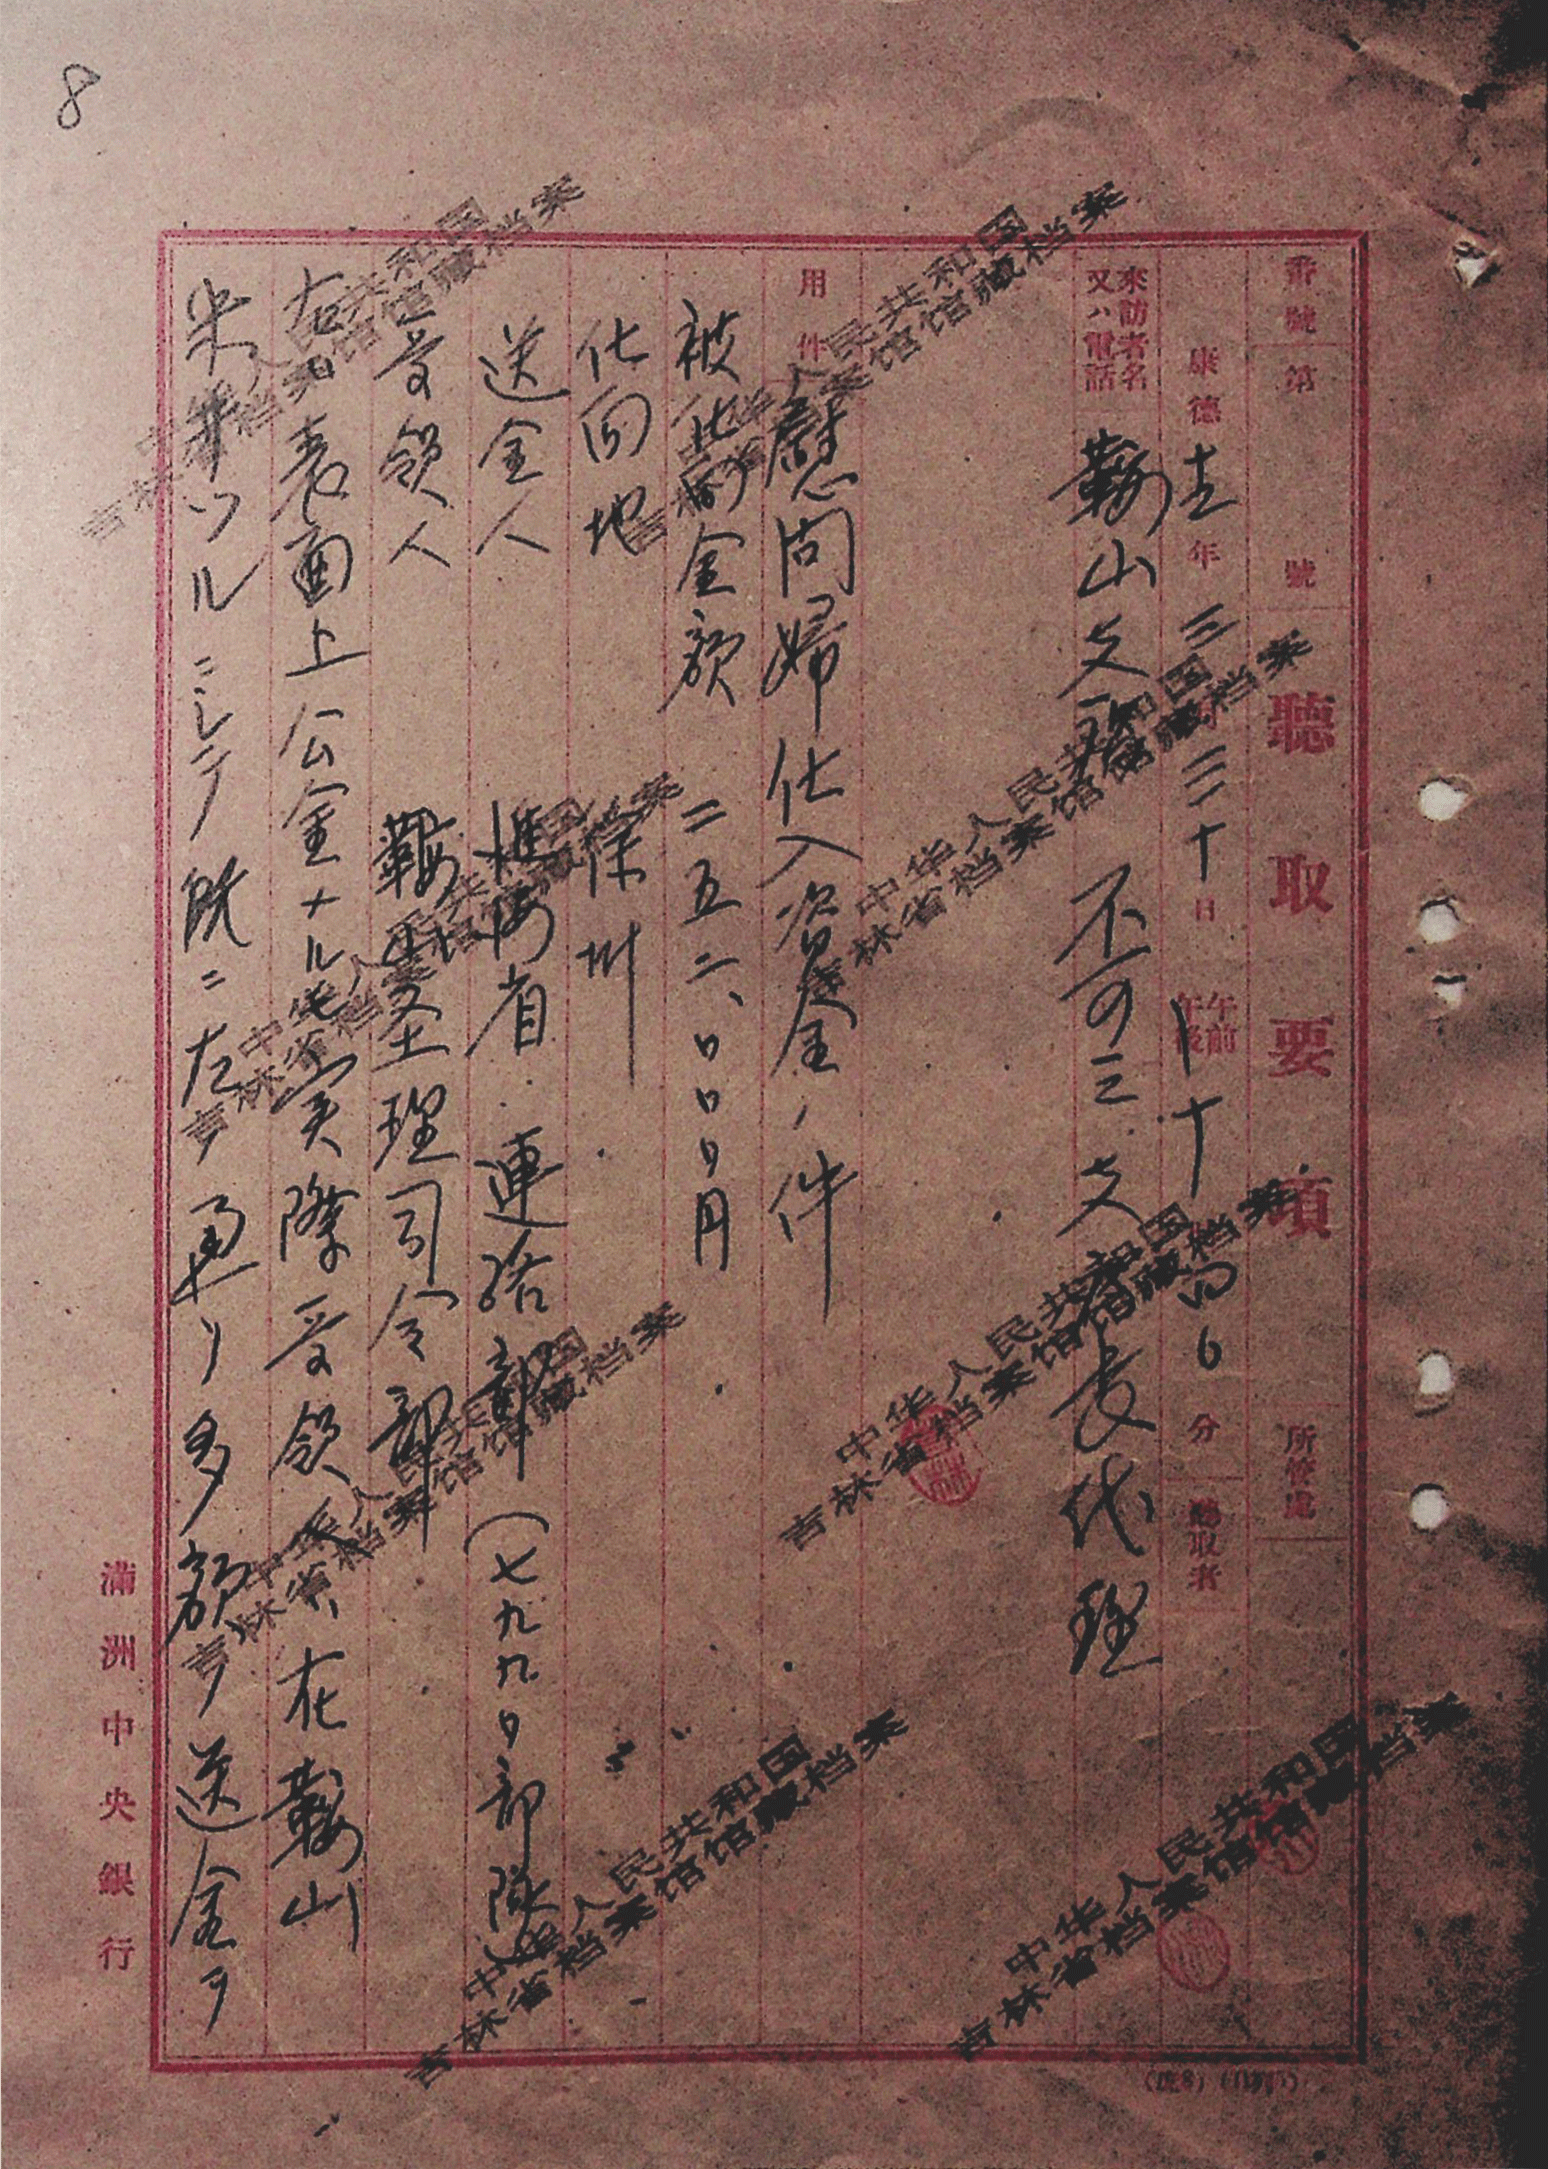 8
番號 第 號 聽取要項 所管處
康德 十一 年 三 月 三十 日 午前 午後 十 時 四〇 分 聽取者
來訪者名 又ハ電話 鞍山支行 不可三支店長代理
用件 慰問婦仕入資金ノ件
被仕向金額 二五二、〇〇〇円
仕向地 徐州
送金人 淮海省 連絡部(七九九〇部隊)
受領人 鞍山經理司令部
右ハ表面上公金ナルモ実際受領人ハ在鞍山
ルニシテ既ニ左ノ通リノ多額ノ送金ヲ
滿洲中央銀行
中华人民共和国
吉林省档案馆馆藏档案
中华人民共和国
吉林省档案馆馆藏档案
中华人民共和国
吉林省档案馆馆藏档案
中华人民共和国
吉林省档案馆馆藏档案
中华人民共和国
吉林省档案馆馆藏档案
中华人民共和国
吉林省档案馆馆藏档案
中华人民共和国
吉林省档案馆馆藏档案
中华人民共和国
吉林省档案馆馆藏档案